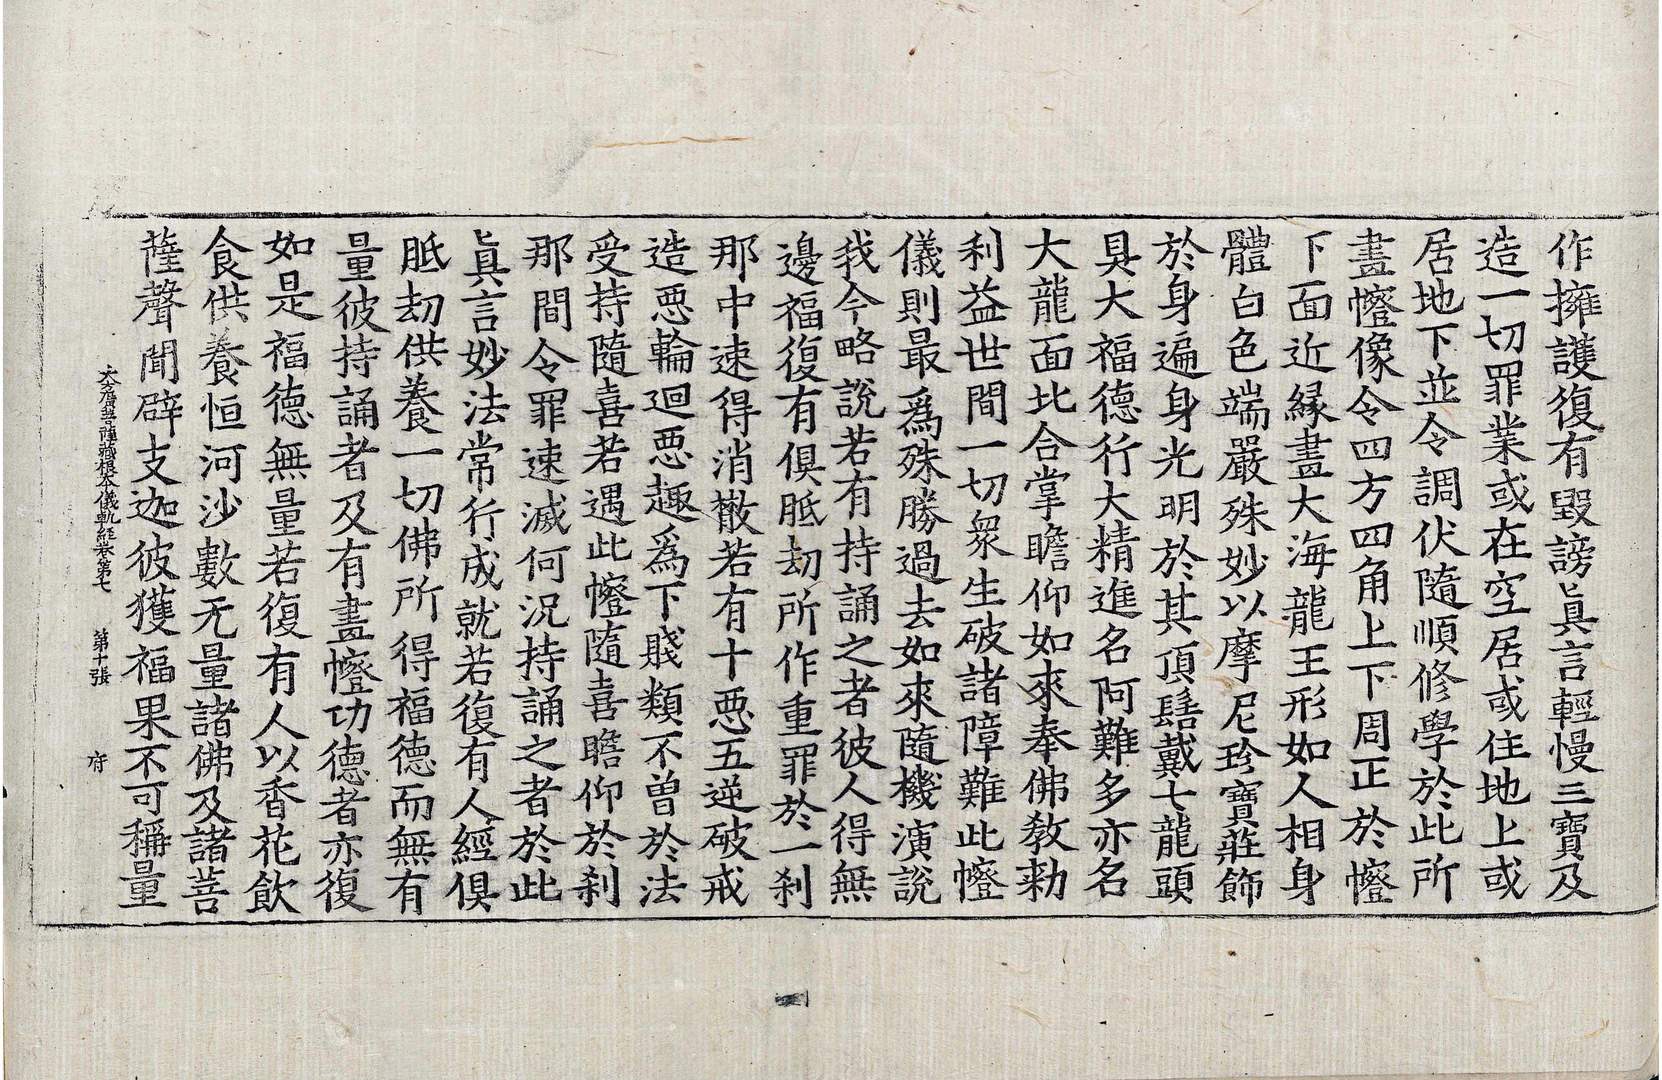 作擁護復有毀謗眞言輕慢三寶及
造一切罪業或在空居或住地上或
居地下並令調伏隨順修學於此所
畫㡧像令四方四角上下周正於㡧
下面近緣畫大海龍王形如人相身
體白色端嚴殊妙以摩尼珍寶莊飾
於身遍身光明於其頂髻戴七龍頭
具大福德行大精進名阿難多亦名
大龍面比合掌瞻仰如來奉佛教勑
利益世間一切衆生破諸障難此㡧
儀則最爲殊勝過去如來隨機演說
我今略說若有持誦之者彼人得無
邊福復有俱胝劫所作重罪於一刹
那中速得消散若有十惡五逆破戒
造惡輪迴惡趣爲下賤類不曾於法
受持隨喜若遇此㡧隨喜瞻仰於刹
那間令罪速滅何況持誦之者於此
眞言妙法常行成就若復有人經俱
胝劫供養一切佛所得福德而無有
量彼持誦者及有畫㡧功德者亦復
如是福德無量若復有人以香花飮
食供養恒河沙數无量諸佛及諸菩
薩聲聞辟支迦彼獲福果不可稱量
大方廣菩薩藏根本儀軌經卷第七 第十張 府